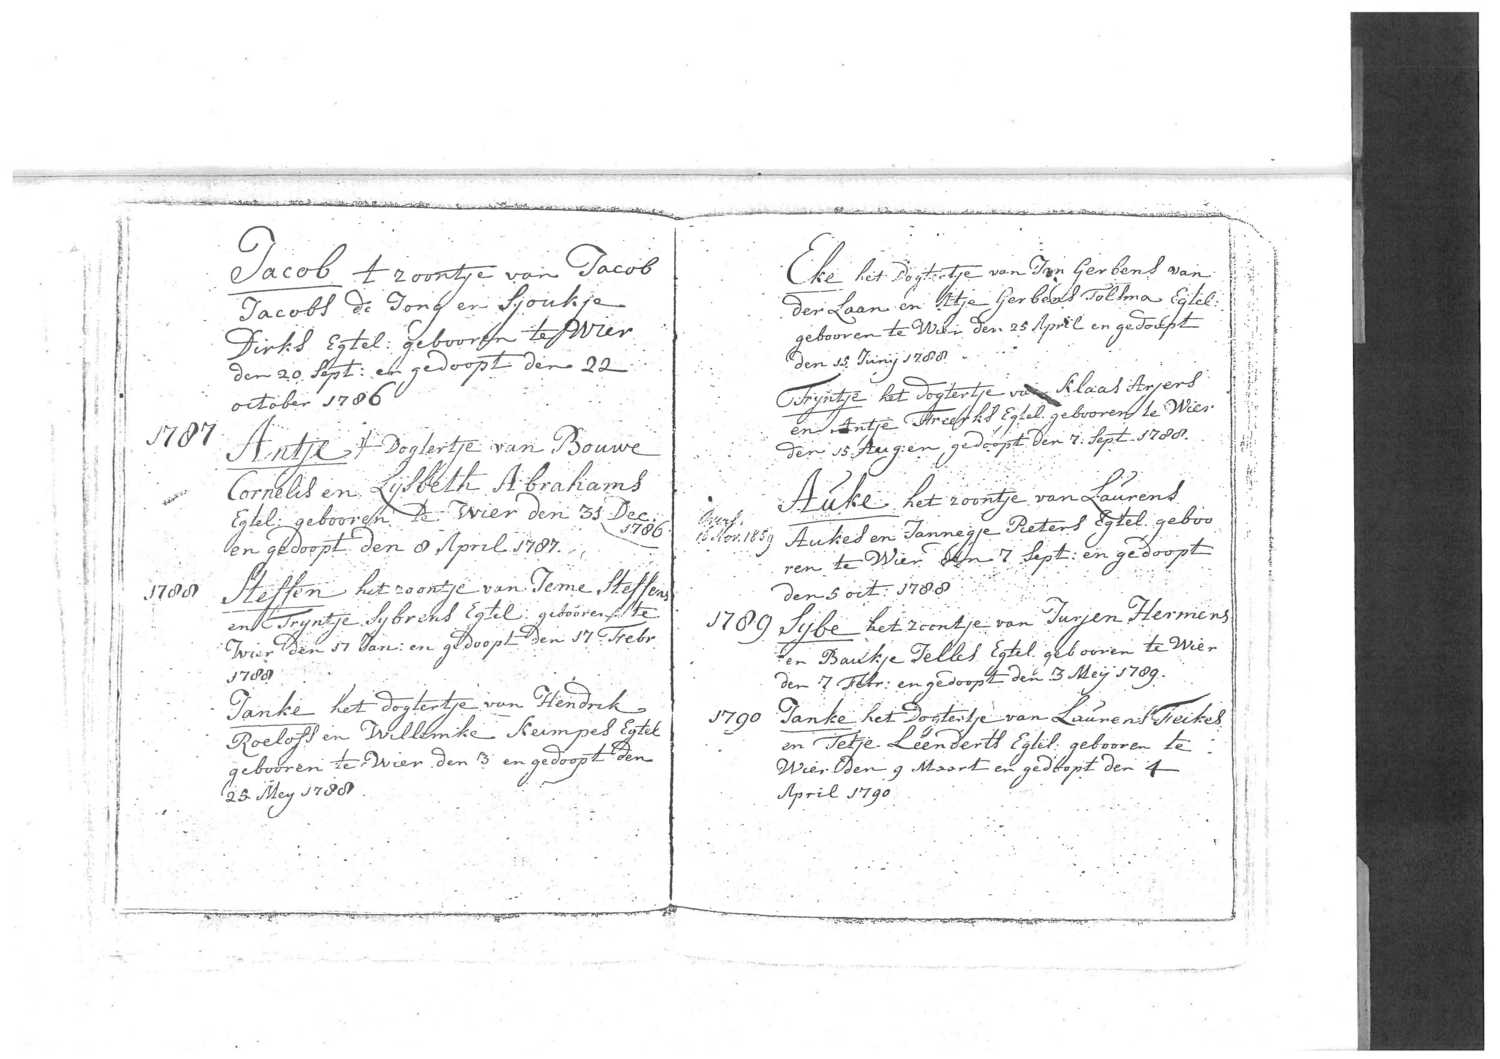 Jacob 't zoontje van Jacob
Jacobs de Jong en Sjoukje
Dirks Egtel: gebooren te Wier
den 20 Sept: en gedoopt den 22
october 1786
1787 Antje 't Dogtertje van Bouwe
Cornelis en Lijsbeth Abrahams
Egtel: gebooren te Wier den 31 Dec. 1786
en gedoopt den 8 April 1787.
1788 Steffen het zoontje van Jeme Steffens
en Tryntje Sybrens Egtel: gebooren te
Wier den 17 Jan: en gedoopt den 17 Febr
1788
Janke het dogtertje van Hendrik
Roeloffs en Willemke Keimpes Egtel
gebooren te Wier den 3 en gedoopt den
25 Mey 1788.
Eke het Dogtertje van Jan Gerbens van
der Laan en Atje Gerbens Tolsma Egtel:
gebooren te Wier den 25 April en gedoopt
den 15 Junij 1788.
Tryntje het Dogtertje van Klaas Arjens
en Antje Freerks Egtel. gebooren te Wier
den 15 Aug: en gedoopt den 7. Sept. 1788.
Auke het zoontje van Laurens
Overl. 18 Nov. 1859 Aukes en Jannegje Pieters Egtel. geboo
ren te Wier den 7 Sept: en gedoopt
den 5 oct: 1788
1789 Sybe het zoontje van Jurjen Hermens
en Baukje Jelles Egtel. gebooren te Wier
den 7 Febr: en gedoopt den 3 Meij 1789.
1790 Janke het Dogtertje van Laurens Feikes
en Tetje Leenderts Egtel: gebooren te
Wier den 9 Maart en gedoopt den 4
April 1790